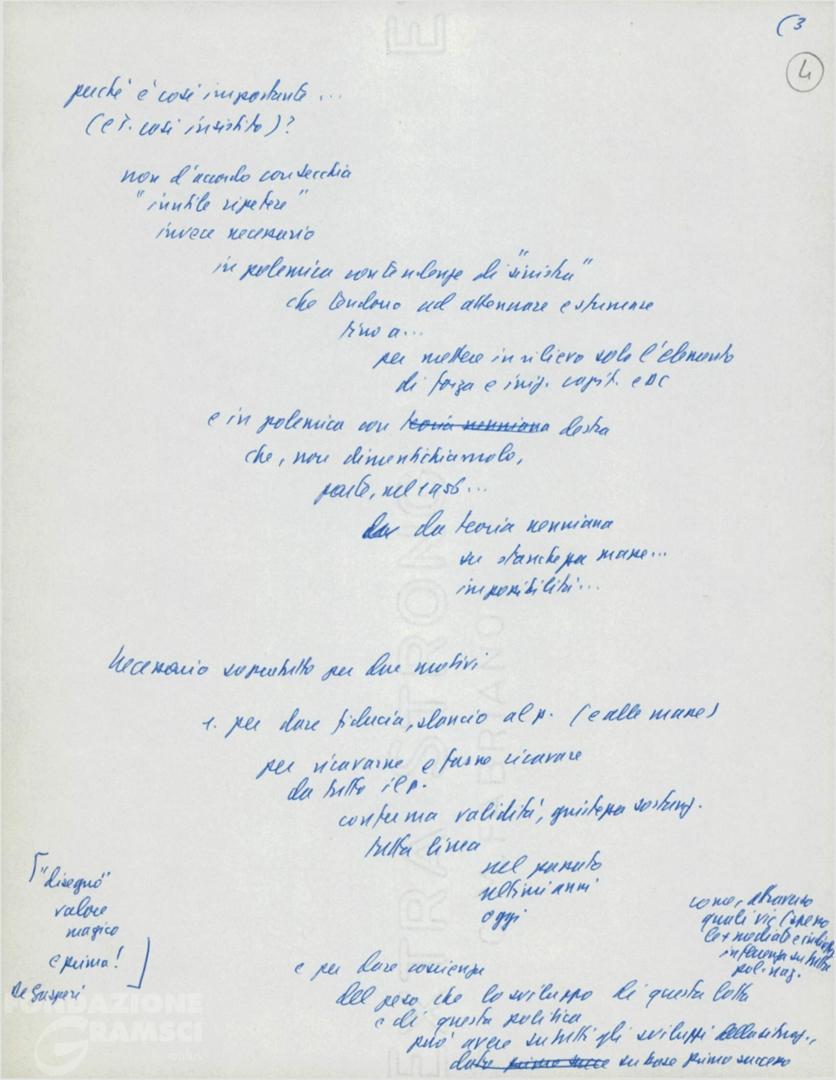 (3
4
perché è così importante...
(e T. così insistito)?
non d'accordo con Secchia
"inutile ripetere"
invece necessario
in polemica con tendenze di "sinistra"
che tendono ad attenuare e sfumare
fino a...
per mettere in rilievo solo l'elemento
di forza e iniz. capit. e DC
e in polemica con teoria nenniana destra
che, non dimentichiamolo,
parte, nel 1956...
da teoria nenniana
su stanchezza masse...
impossibilità...
Necessario soprattutto per due motivi
1. per dare fiducia, slancio al p. (e alle masse)
per ricavarne e farne ricavare
da tutto il p.
conferma validità, giustezza sostanz.
tutta linea
nel passato
ultimi anni
oggi
"disegno"
valore
magico
e prima!
De Gasperi
come, attraverso
quali vie (spesso
le + mediate e indirette)
influenza su tutta
pol. naz.
e per dare coscienza
del peso che lo sviluppo di questa lotta
e di questa politica
può avere su tutti gli sviluppi della situaz.,
su base primo successo
EXTRA STRONG
FABRIANO
FONDAZIONE
GRAMSCI